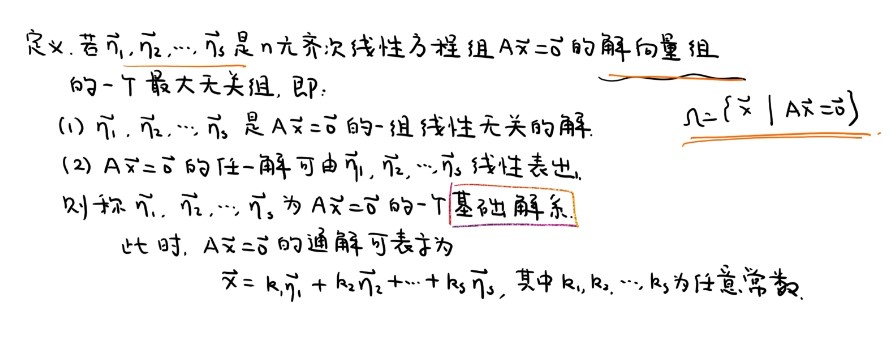 定义. 若 η⃗₁, η⃗₂, ⋯, η⃗ₛ 是 n 元齐次线性方程组 Ax⃗=0⃗ 的解向量组
的一个最大无关组, 即:
Ω={x⃗ | Ax⃗=0⃗}
(1) η⃗₁, η⃗₂, ⋯, η⃗ₛ 是 Ax⃗=0⃗ 的一组线性无关的解.
(2) Ax⃗=0⃗ 的任一解可由 η⃗₁, η⃗₂, ⋯, η⃗ₛ 线性表出.
则称 η⃗₁, η⃗₂, ⋯, η⃗ₛ 为 Ax⃗=0⃗ 的一个基础解系.
此时, Ax⃗=0⃗ 的通解可表示为
x⃗ = k₁η⃗₁ + k₂η⃗₂ + ⋯ + kₛη⃗ₛ, 其中 k₁, k₂, ⋯, kₛ 为任意常数.